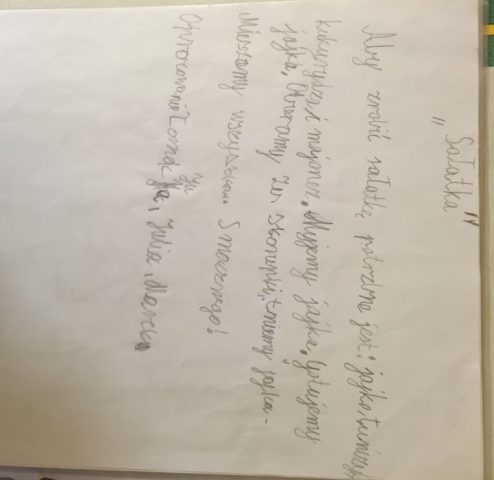 „Sałatka"
Aby zrobić sałatkę potrzebne jest: jajko, tuńczyk
kukurydza i majonez. Myjemy jajka. Gotujemy
jajka. Obieramy ze skorupki, tniemy jajka.
Mieszamy wszystkie. Smacznego!
Opracowanie Tomek, Julia, Marcel